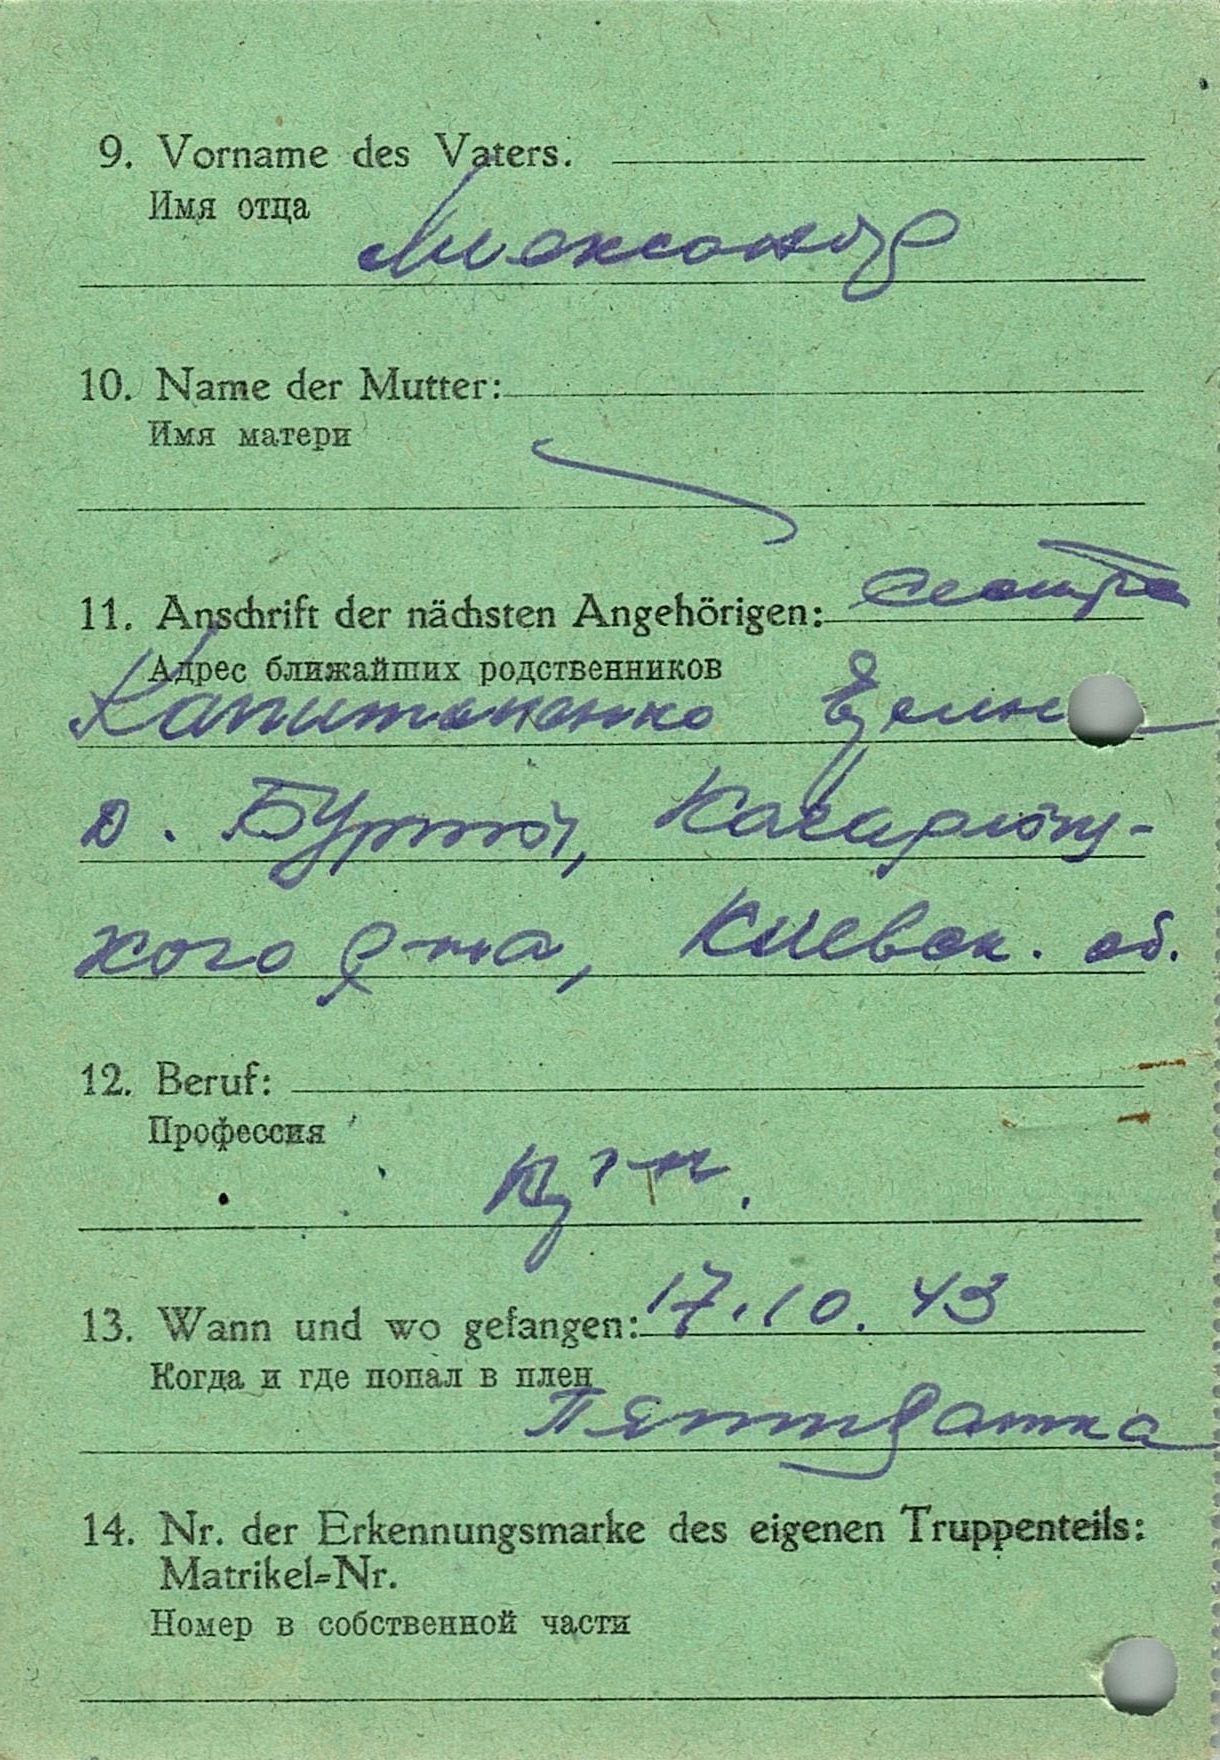 9. Vorname des Vaters.
Имя отца
Александр
10. Name der Mutter:
Имя матери
11. Anschrift der nächsten Angehörigen: сестра
Адрес ближайших родственников
Капитоненко
д. Бурты, Кагарлыц-
кого р-на, Киевск. об.
12. Beruf:
Профессия
13. Wann und wo gefangen: 17.10.43
Когда и где попал в плен
Пятихатка
14. Nr. der Erkennungsmarke des eigenen Truppenteils:
Matrikel-Nr.
Номер в собственной части